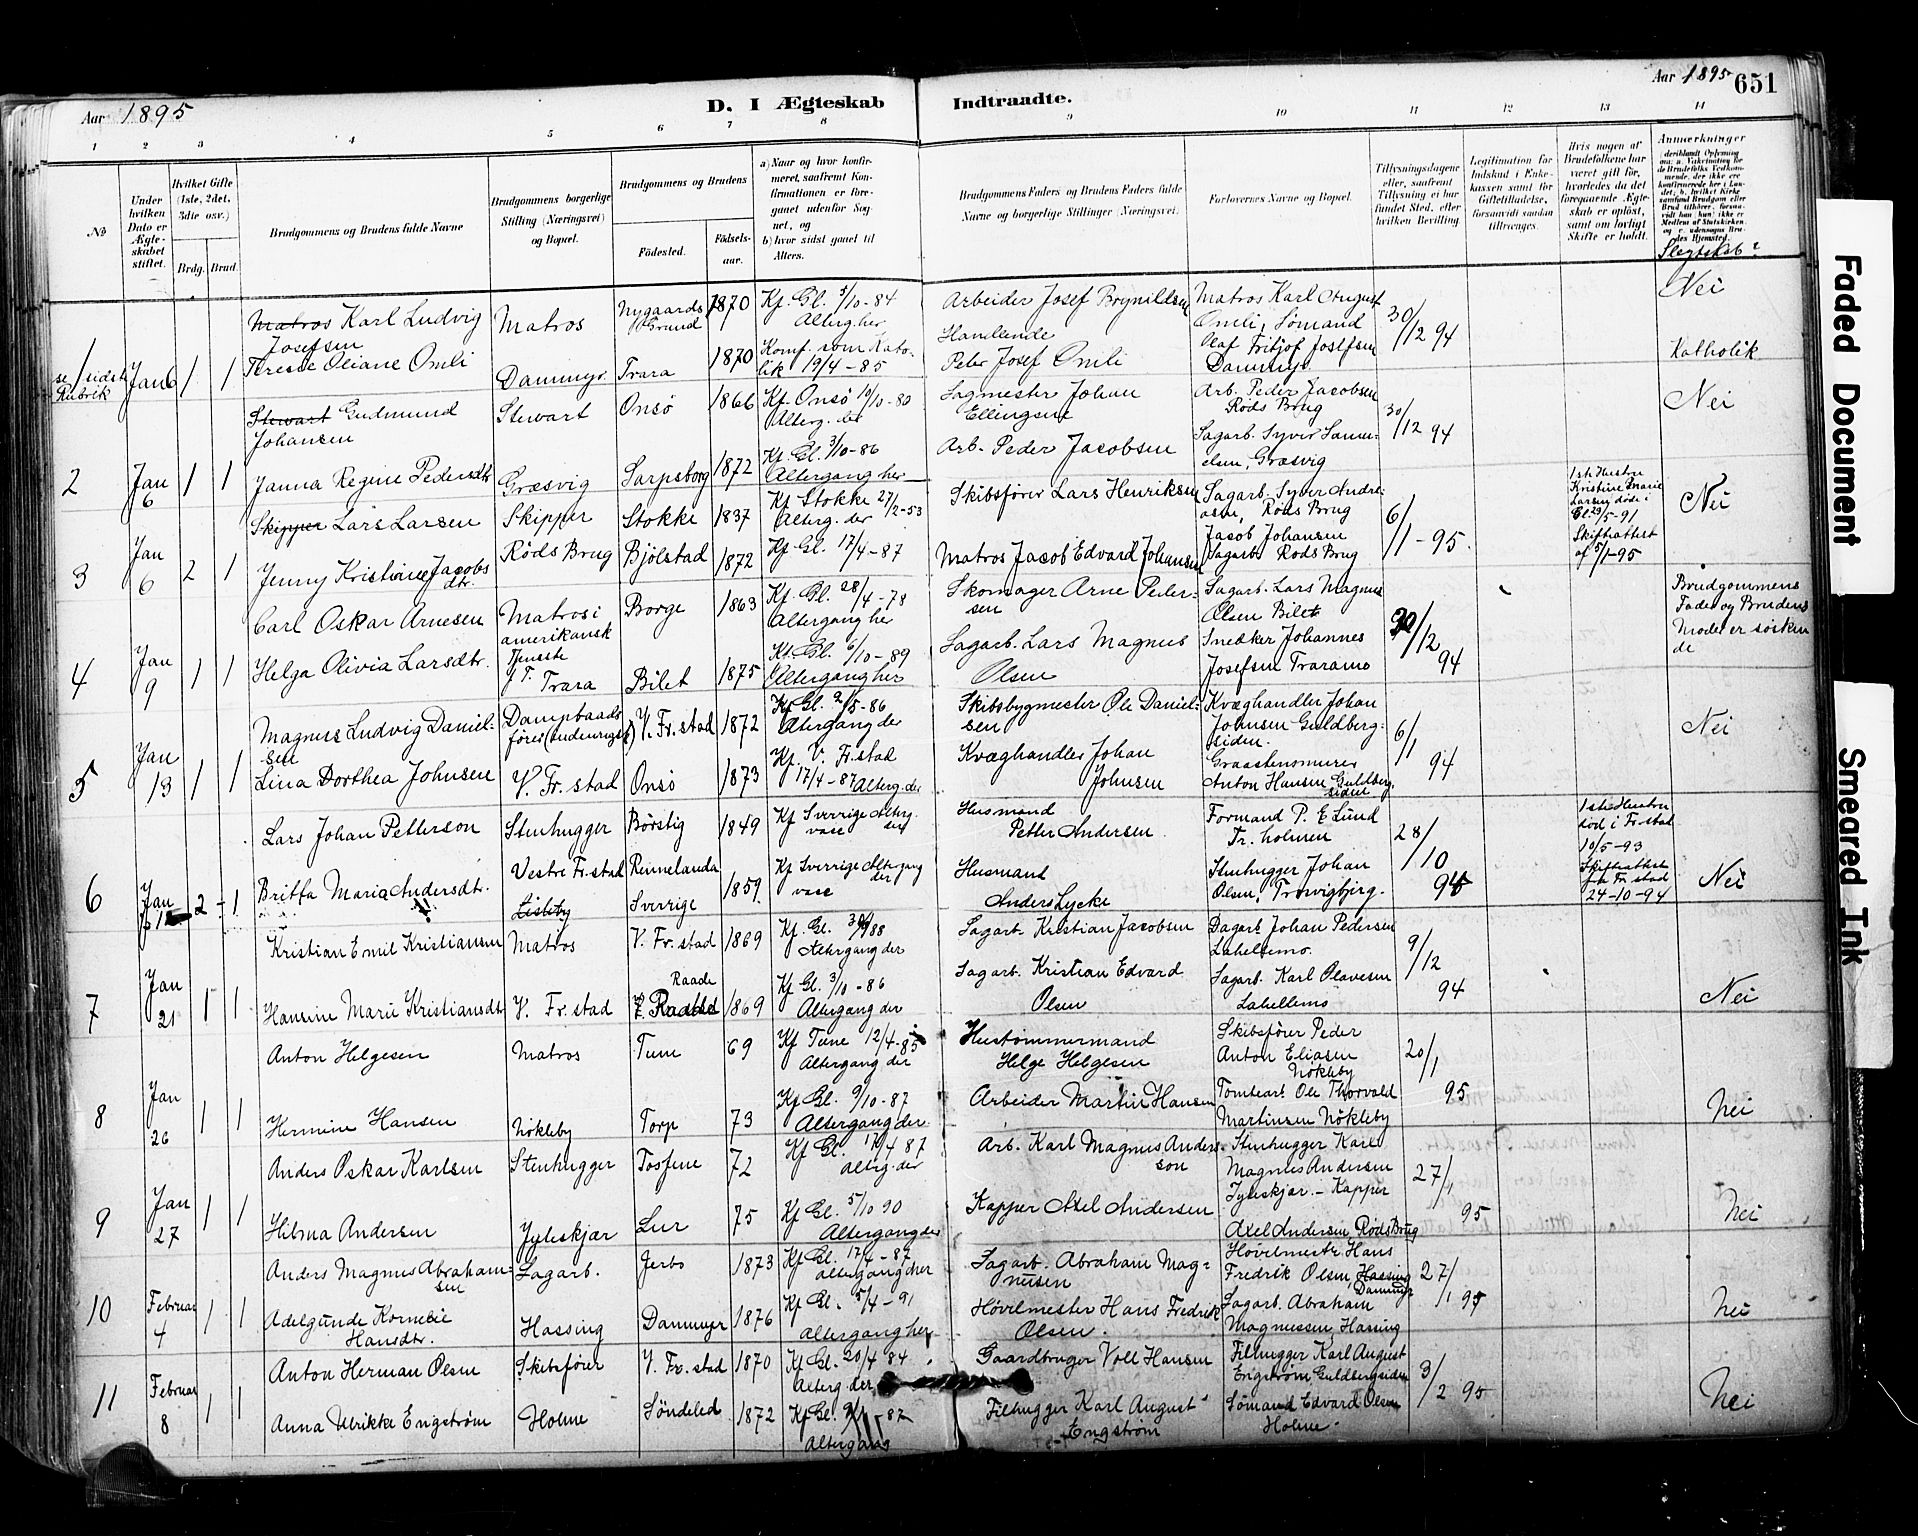 Aar 1895
D. I Ægteskab Indtraadte.
Aar 1895 651
1 2 3 4 5 6 7 8 9 10 11 12 13 14
No
Under hvilken Dato er Ægteskabet stiftet.
Hvilket Gifte (1ste, 2det, 3die osv.)
Brdg. Brud.
Brudgommens og Brudens fulde Navne
Brudgommens borgerlige Stilling (Næringsvei) og Bopæl.
Brudgommens og Brudens
Fødested. Fødselsaar.
a) Naar og hvor konfirmeret, saafremt Konfirmationen er foregaaet udenfor Sognet, og
b) hvor sidst gaaet til Alters.
Brudgommens Faders og Brudens Faders fulde Navne og borgerlige Stillinger (Næringsvei)
Forlovernes Navne og Bopæl.
Tillysningsdagene eller, saafremt Tillysning ei har fundet Sted, efter hvilken Bevilling
Legitimation for Indskud i Enkekassen samt for Giftetilladelse, forsaavidt saadan tiltrænges.
Hvis nogen af Brudefolkene har været gift før, hvorledes da det foregaaende Ægteskab er opløst, samt om lovligt Skifte er holdt.
Anmerkninger
Slegtskab?
1 se sidste Rubrik Jan 6 1 1
Matros Karl Ludvig Josefsen
Matros
Nygaards Grund 1870
Kf. Gl. 5/10-84
Alterg. her
Arbeider Josef Brynildsen
Matros Karl August Omli, Sømand
30/12 94
Nei
Terese Oliane Omli
Dammyr Trara 1870
Konf. som Katolik 19/4-85
Handlende
Peter Josef Omli
Olaf Fritjof Josefsen
Dammyr
Katholik
2 Jan 6 1 1
Stewart Gudmund Johansen
Stewart Onsø 1866
Kf. Onsø 19/10-80
Alterg. der
Sagmester Johan Ellingsen
Arb. Peder Jacobsen
Røds Brug
30/12 94
Nei
Janna Regine Pedersdtr
Græsvig Sarpsborg 1872
Kf. Gl. 3/10-86
Altergang her
Arb. Peder Jacobsen
Sagarb. Syver Samuelsen, Græsvig
3 Jan 6 2 1
Skipper Lars Larsen
Skipper Stokke 1837
Kf Stokke 27/2-53
Alterg. der
Skibsfører Lars Henriksen
Sagarb. Syver Andreasen, Røds Brug
6/1-95.
1ste Hustru Kristine Marie Larsen døde i Gl. 29/5-91
Skifteattest af 5/1-95
Nei
Jenny Kristine Jacobsdtr.
Røds Brug Bjølstad 1872
Kf. Gl. 17/4-87
Matros Jacob Edvard Johansen
Jacob Johansen
Sagarb. Røds Brug
4 Jan 9 1 1
Carl Oskar Arnesen
Matros i amerikansk Tjeneste
Borge 1863
Kf. Gl. 28/4-78
Altergang her
Skomager Arne Pedersen
Sagarb. Lars Magnus Olsen Bilet
30/12 94
Brudgommens Fader og Brudens Moder er søskende
Helga Olivia Larsdtr.
f. T. Trara Bilet 1875
Kf. Gl. 6/10-89
Altergang her
Sagarb. Lars Magnus Olsen
Snedker Johannes Josefsen Traramo
5 Jan 13 1 1
Magnus Ludvig Danielsen
Dampbaadsfører (indenrigsk)
V. Fr. stad 1872
Kf. Gl. 2/5-86
Altergang der
Skibsbygmester Ole Danielsen
Kvæghandler Johan Johnsen Guldbergsiden.
6/1 94
Nei
Lina Dorthea Johnsen
V. Fr. stad Onsø 1873
Kf. V. Fr. stad
17/4-87 Alterg. der
Kvæghandler Johan Johnsen
Graastenomurer
Anton Hansen Guldbergsiden
6 Jan 2 1
Lars Johan Petterson
Stenhugger Børstig 1849
Kf Sverrige Alterg. vase der
Husmand
Petter Andersen.
Formand P. E Lund
Tr. holmen
28/10 94
1ste Hustru død i Fr.stad 10/5-93
Skifteattest fra Fr. stad 24-10-94
Nei
Britta Maria Andersdtr.
Vestre Fr. stad Lisleby
Rennelanda Sverrige 1859
Kf Sverrige Altergang vase der
Husmand
Anders Lycke
Stenhugger Johan Olsen, Trosvigbjerg.
7 Jan 21 1 1
Kristian Emil Kristiansen
Matros V. Fr. stad 1869
Kf. Gl. 30/9 88
Altergang der
Sagarb. Kristian Jacobsen
Dagarb. Johan Pedersen
Lahellemo.
9/12 94
Nei
Hansine Marie Kristiansdtr
V. Fr. stad Raade 1869
Kf Gl. 3/10-86
Altergang der
Sagarb. Kristian Edvard Olsen
Sagarb. Karl Olavesen
Lahellemo
8 Jan 26 1 1
Anton Helgesen
Matros Tune 69
Kf Tune 12/4-85
Altergang der
Hustømmermand
Helge Helgesen
Skibsfører Peder Anton Eliasen Nökleby
20/1 95
Nei
Hermine Hansen
Nökleby Torp 73
Kf Gl. 9/10-87
Altergang der
Arbeider Martin Hansen
Tomtearb. Ole Thorvald Martinsen Nökleby
9 Jan 27 1 1
Anders Oskar Karlsen
Stenhugger Tosfene 72
Kf Gl. 17/4 87
Alterg. der
Arb. Karl Magnus Anderson
Stenhugger Karl Magnus Andersen
Jyleskjær - Kapper
27/1 95
Nei
Hilma Andersen
Jyleskjær Lur 75
Kf Gl. 5/10 90
Altergang der
Kapper Axel Andersen
Axel Andersen Røds Brug
10 Februar 4 1 1
Anders Magnus Abrahamsen
Sagarb. Jerbo 1873
Kf. Gl. 17/4-87
altergang her
Sagarb. Abraham Magnusen
Høvilmestr Hans Fredrik Olsen, Hassing Dammyr
27/1 95
Nei
Adelgunde Kornelie Hansdtr.
Hassing Dammyr 1876
Kf Gl. 5/4-91
altergang her
Høvilmester Hans Fredrik Olsen.
Sagarb. Abraham Magnussen, Hassing
11 Februar 8 1 1
Anton Herman Olsen
Skibsfører V. Fr. stad 1870
Kf Gl. 20/4 84
Alterg. der,
Gaardbruger Voll Hansen
Filhugger Karl August Engstrøm, Guldbergsiden
3/2 95
Nei
Anna Ulrikke Engstrøm
Holme Søndeled 1872
Kf Gl. -87
Altergang
Filhugger Karl August Engstrøm
Sømand Edvard Olsen
Holme.
Faded Document
Smeared Ink